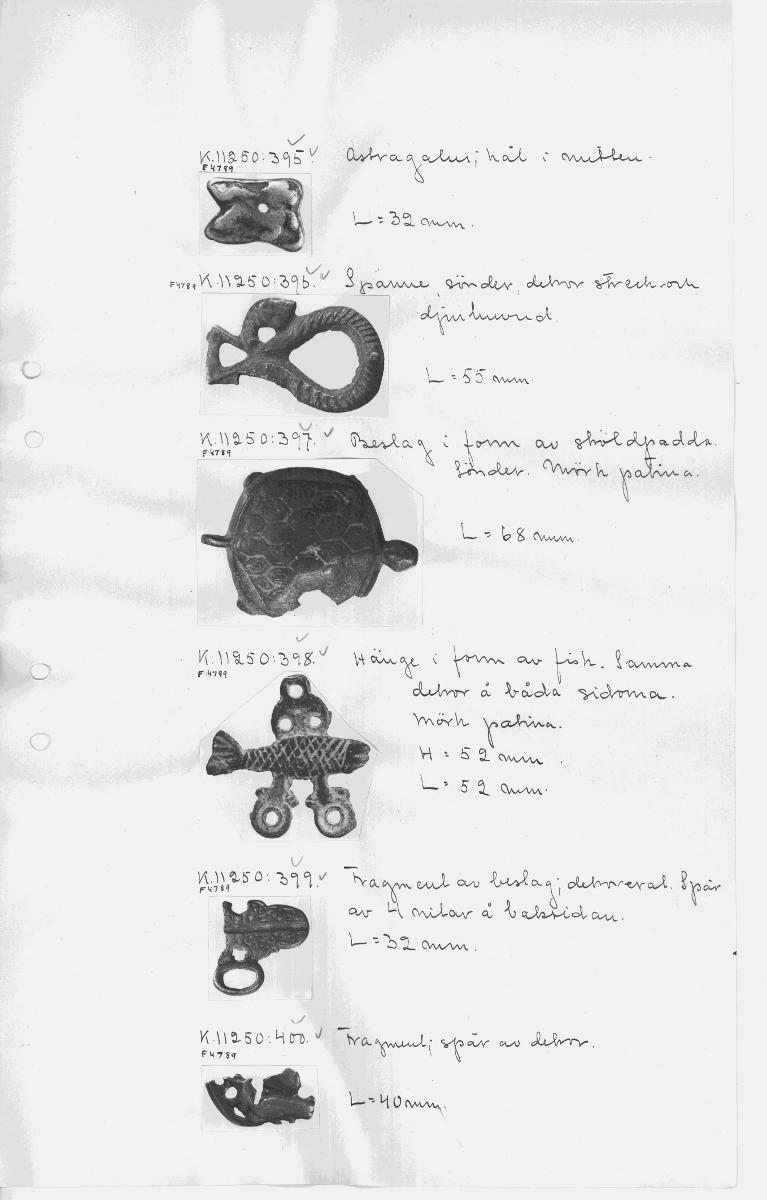 K.11250:395. Astragalus; hål i mitten.
F4789
L = 32 mm.
F4789 K.11250:396. Spänne, sönder, dekor streck och
djurhuvud.
L = 55 mm.
K.11250:397. Beslag i form av sköldpadda.
F4789
Sönder. Mörk patina.
L = 68 mm.
K.11250:398. Hänge i form av fisk. Samma
F4789
dekor å båda sidorna.
Mörk patina.
H = 52 mm.
L = 52 mm.
K.11250:399. Fragment av beslag; dekorerat. Spår
F4789
av 4 nitar å baksidan.
L = 32 mm.
K.11250:400. Fragment; spår av dekor.
F4789
L = 40 mm.